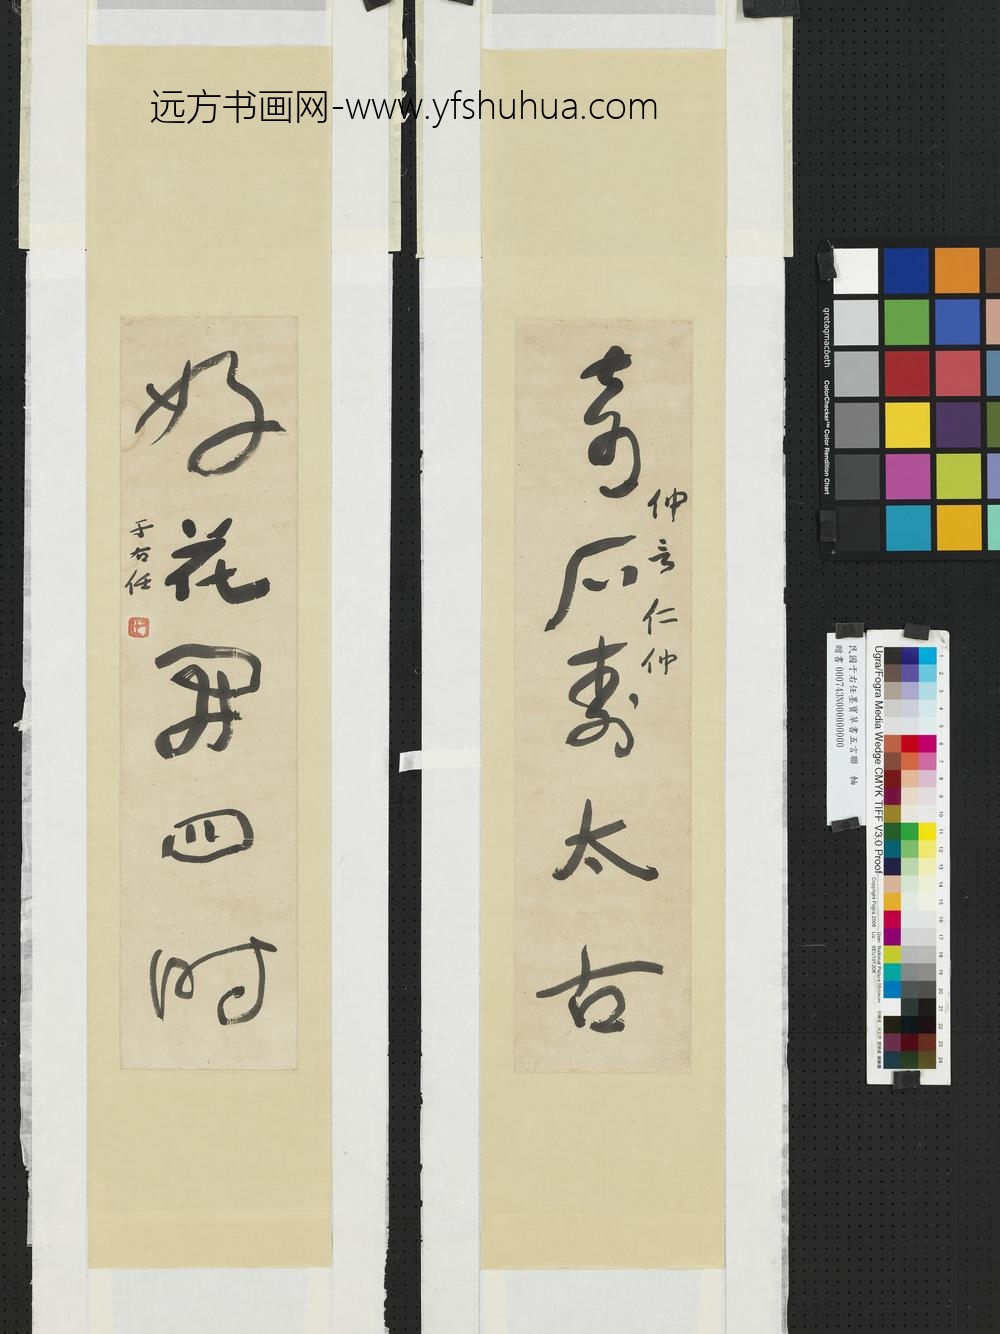 远方书画网-www.yfshuhua.com
奇石壽太古
仲言仁仲
好花開四時
于右任
gretagmacbeth
ColorChecker™ Color Rendition Chart
民國于右任墨寶草書五言聯 軸
贈書 000743N000000000
Ugra/Fogra Media Wedge CMYK TIFF V3.0 Proof
Copyright Fogra 2008
User: National Palace Museum